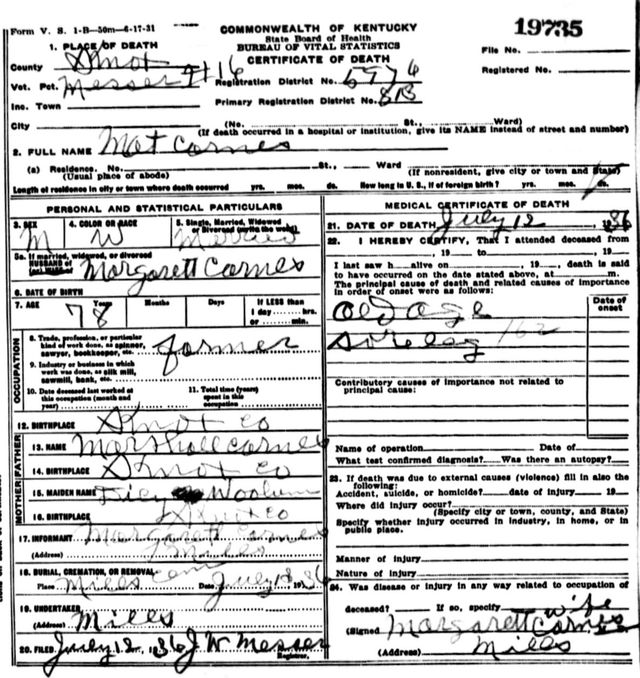 Form V. S. 1-B—50m—6-17-31
COMMONWEALTH OF KENTUCKY
State Board of Health
BUREAU OF VITAL STATISTICS
CERTIFICATE OF DEATH
19735
File No.
Registered No.
1. PLACE OF DEATH
County Knox
Vot. Pct. Messer #116
Registration District No.
Inc. Town
Primary Registration District No.
City (No. St., Ward)
(If death occurred in a hospital or institution, give its NAME instead of street and number)
2. FULL NAME Mat Carnes
(a) Residence. No. St., Ward
(Usual place of abode) (If nonresident, give city or town and State)
Length of residence in city or town where death occurred yrs. mos. ds. How long in U. S., if of foreign birth? yrs. mos. ds.
PERSONAL AND STATISTICAL PARTICULARS
3. SEX 4. COLOR OR RACE 5. Single, Married, Widowed or Divorced (write the word)
M W Married
5a. If married, widowed, or divorced
HUSBAND of
(or) WIFE of Margarett Carnes
6. DATE OF BIRTH
7. AGE Years Months Days If LESS than
78 1 day hrs.
or min.
OCCUPATION
8. Trade, profession, or particular
kind of work done, as spinner,
sawyer, bookkeeper, etc. farmer
9. Industry or business in which
work was done, as silk mill,
sawmill, bank, etc.
10. Date deceased last worked at
this occupation (month and
year)
11. Total time (years)
spent in this
occupation
12. BIRTHPLACE Knox Co
FATHER
13. NAME Marshall Carnes
14. BIRTHPLACE Knox Co
MOTHER
15. MAIDEN NAME
16. BIRTHPLACE Knox Co
17. INFORMANT Margarett Carnes
(Address) Mills
18. BURIAL, CREMATION, OR REMOVAL
Place Mills Cem Date July 1936
19. UNDERTAKER
(Address) Mills
20. FILED July 12, 1936 J W Messer
Registrar.
MEDICAL CERTIFICATE OF DEATH
21. DATE OF DEATH July 12 1936
22. I HEREBY CERTIFY, That I attended deceased from
, 19 to , 19
I last saw h alive on , 19 , death is said
to have occurred on the date stated above, at m.
The principal cause of death and related causes of importance
in order of onset were as follows:
Date of onset
Old age
162
Contributory causes of importance not related to
principal cause:
Name of operation Date of
What test confirmed diagnosis? Was there an autopsy?
23. If death was due to external causes (violence) fill in also the
following:
Accident, suicide, or homicide? date of injury 19
Where did injury occur?
(Specify city or town, county, and State)
Specify whether injury occurred in industry, in home, or in
public place.
Manner of injury
Nature of injury
24. Was disease or injury in any way related to occupation of
deceased? If so, specify wife
(Signed Margarett Carnes
(Address) Mills